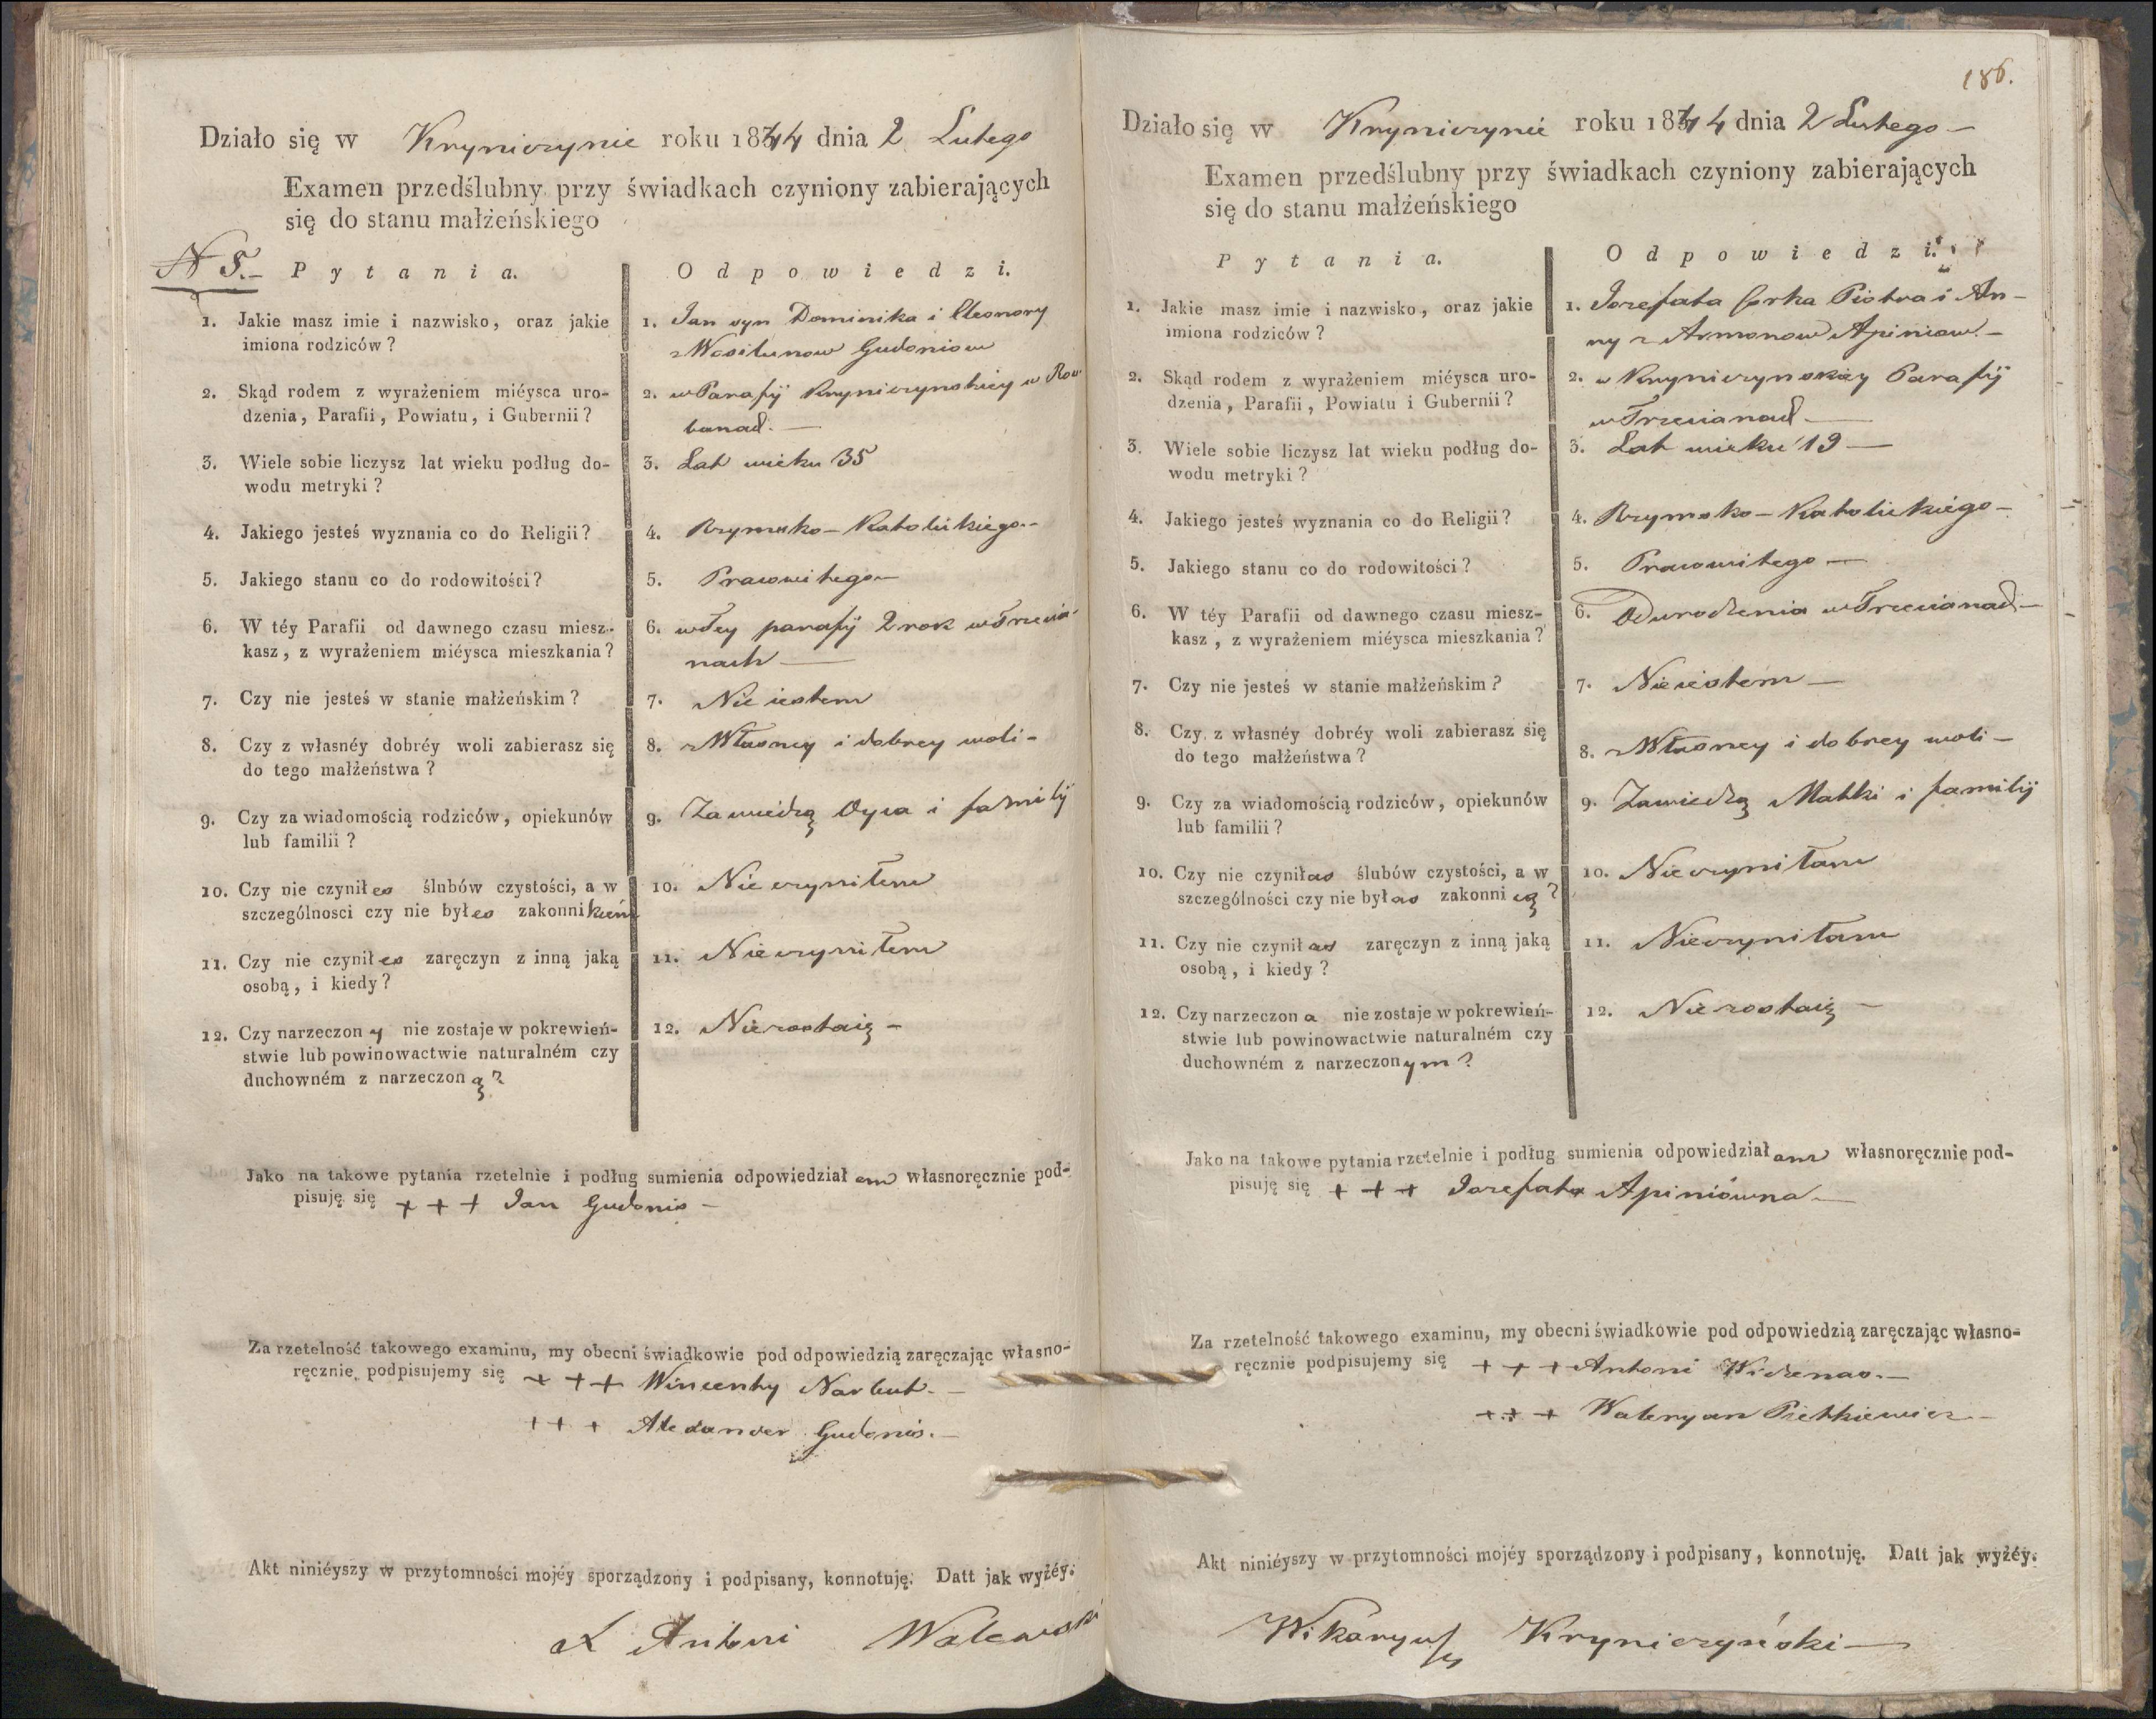 Działo się w Kryniczynie roku 1844 dnia 2 Lutego
Examen przedślubny przy świadkach czyniony zabierających
się do stanu małżeńskiego
N 5.- Pytania. Odpowiedzi.
1. Jakie masz imie i nazwisko, oraz jakie
imiona rodziców?
1. Jan syn Dominika i Eleonory
z Wasilunow Gudoniow
2. Skąd rodem z wyrażeniem miéysca uro-
dzenia, Parafii, Powiatu, i Gubernii?
2. w Parafij Kryniczynskiey w
3. Wiele sobie liczysz lat wieku podług do-
wodu metryki?
3. Lat wieku 35
4. Jakiego jesteś wyznania co do Religii?
4. Rzymsko-Katolickiego.-
5. Jakiego stanu co do rodowitości?
5. Pracowitego-
6. W téy Parafii od dawnego czasu miesz-
kasz, z wyrażeniem miéysca mieszkania?
6. w Tey parafij 2 rok w Trzecia-
nach-
7. Czy nie jesteś w stanie małżeńskim?
7. Nie iestem
8. Czy z własnéy dobréy woli zabierasz się
do tego małżeństwa?
8. z Własney i dobrey woli-
9. Czy za wiadomością rodziców, opiekunów
lub familii?
9. Za wiedzą Oyca i familij
10. Czy nie czyniłes ślubów czystości, a w
szczególnosci czy nie byłes zakonnikiem
10. Nie czyniłem
11. Czy nie czyniłes zaręczyn z inną jaką
osobą, i kiedy?
11. Nie czyniłem
12. Czy narzeczony nie zostaje w pokrewień-
stwie lub powinowactwie naturalném czy
duchowném z narzeczoną?
12. Nie zostaię-
Jako na takowe pytania rzetelnie i podług sumienia odpowiedziałem własnoręcznie pod-
pisuję się + + + Jan Gudonis-
Za rzetelność takowego examinu, my obecni świadkowie pod odpowiedzią zaręczając własno-
ręcznie podpisujemy się + + + Wincenty Narbut.-
+ + + Alexander Gudonis.-
Akt niniéyszy w przytomności mojéy sporządzony i podpisany, konnotuję. Datt jak wyżéy.
X Antoni Walewski
186.
Działo się w Kryniczynie roku 1844 dnia 2 Lutego-
Examen przedślubny przy świadkach czyniony zabierających
się do stanu małżeńskiego
Pytania. Odpowiedzi.
1. Jakie masz imie i nazwisko, oraz jakie
imiona rodziców?
1. Jozefata Corka Piotra i An-
ny z Armonow Apiniow.-
2. Skąd rodem z wyrażeniem miéysca uro-
dzenia, Parafii, Powiatu i Gubernii?
2. w Krynicznynskiey Parafij
w Trzecianach-
3. Wiele sobie liczysz lat wieku podług do-
wodu metryki?
3. Lat wieku 19-
4. Jakiego jesteś wyznania co do Religii?
4. Rzymsko-Katolickiego-
5. Jakiego stanu co do rodowitości?
5. Pracowitego-
6. W téy Parafii od dawnego czasu miesz-
kasz, z wyrażeniem miéysca mieszkania?
6. Od urodzenia w Trzecianach-
7. Czy nie jesteś w stanie małżeńskim?
7. Nie iestem-
8. Czy z własnéy dobréy woli zabierasz się
do tego małżeństwa?
8. z Własney i dobrey woli-
9. Czy za wiadomością rodziców, opiekunów
lub familii?
9. Za wiedzą Matki i familij
10. Czy nie czyniłas ślubów czystości, a w
szczególności czy nie byłas zakonnicą?
10. Nie czyniłam
11. Czy nie czyniłas zaręczyn z inną jaką
osobą, i kiedy?
11. Nie czyniłam
12. Czy narzeczona nie zostaje w pokrewień-
stwie lub powinowactwie naturalném czy
duchowném z narzeczonym?
12. Nie zostaię-
Jako na takowe pytania rzetelnie i podług sumienia odpowiedziałam własnoręcznie pod-
pisuję się + + + Jozefata Apiniówna-
Za rzetelność takowego examinu, my obecni świadkowie pod odpowiedzią zaręczając własno-
ręcznie podpisujemy się + + + Antoni Widzenas.-
+ + + Waleryan Pietkiewicz-
Akt niniéyszy w przytomności mojéy sporządzony i podpisany, konnotuję. Datt jak wyżéy.
Wikaryusz Krynicznyński-